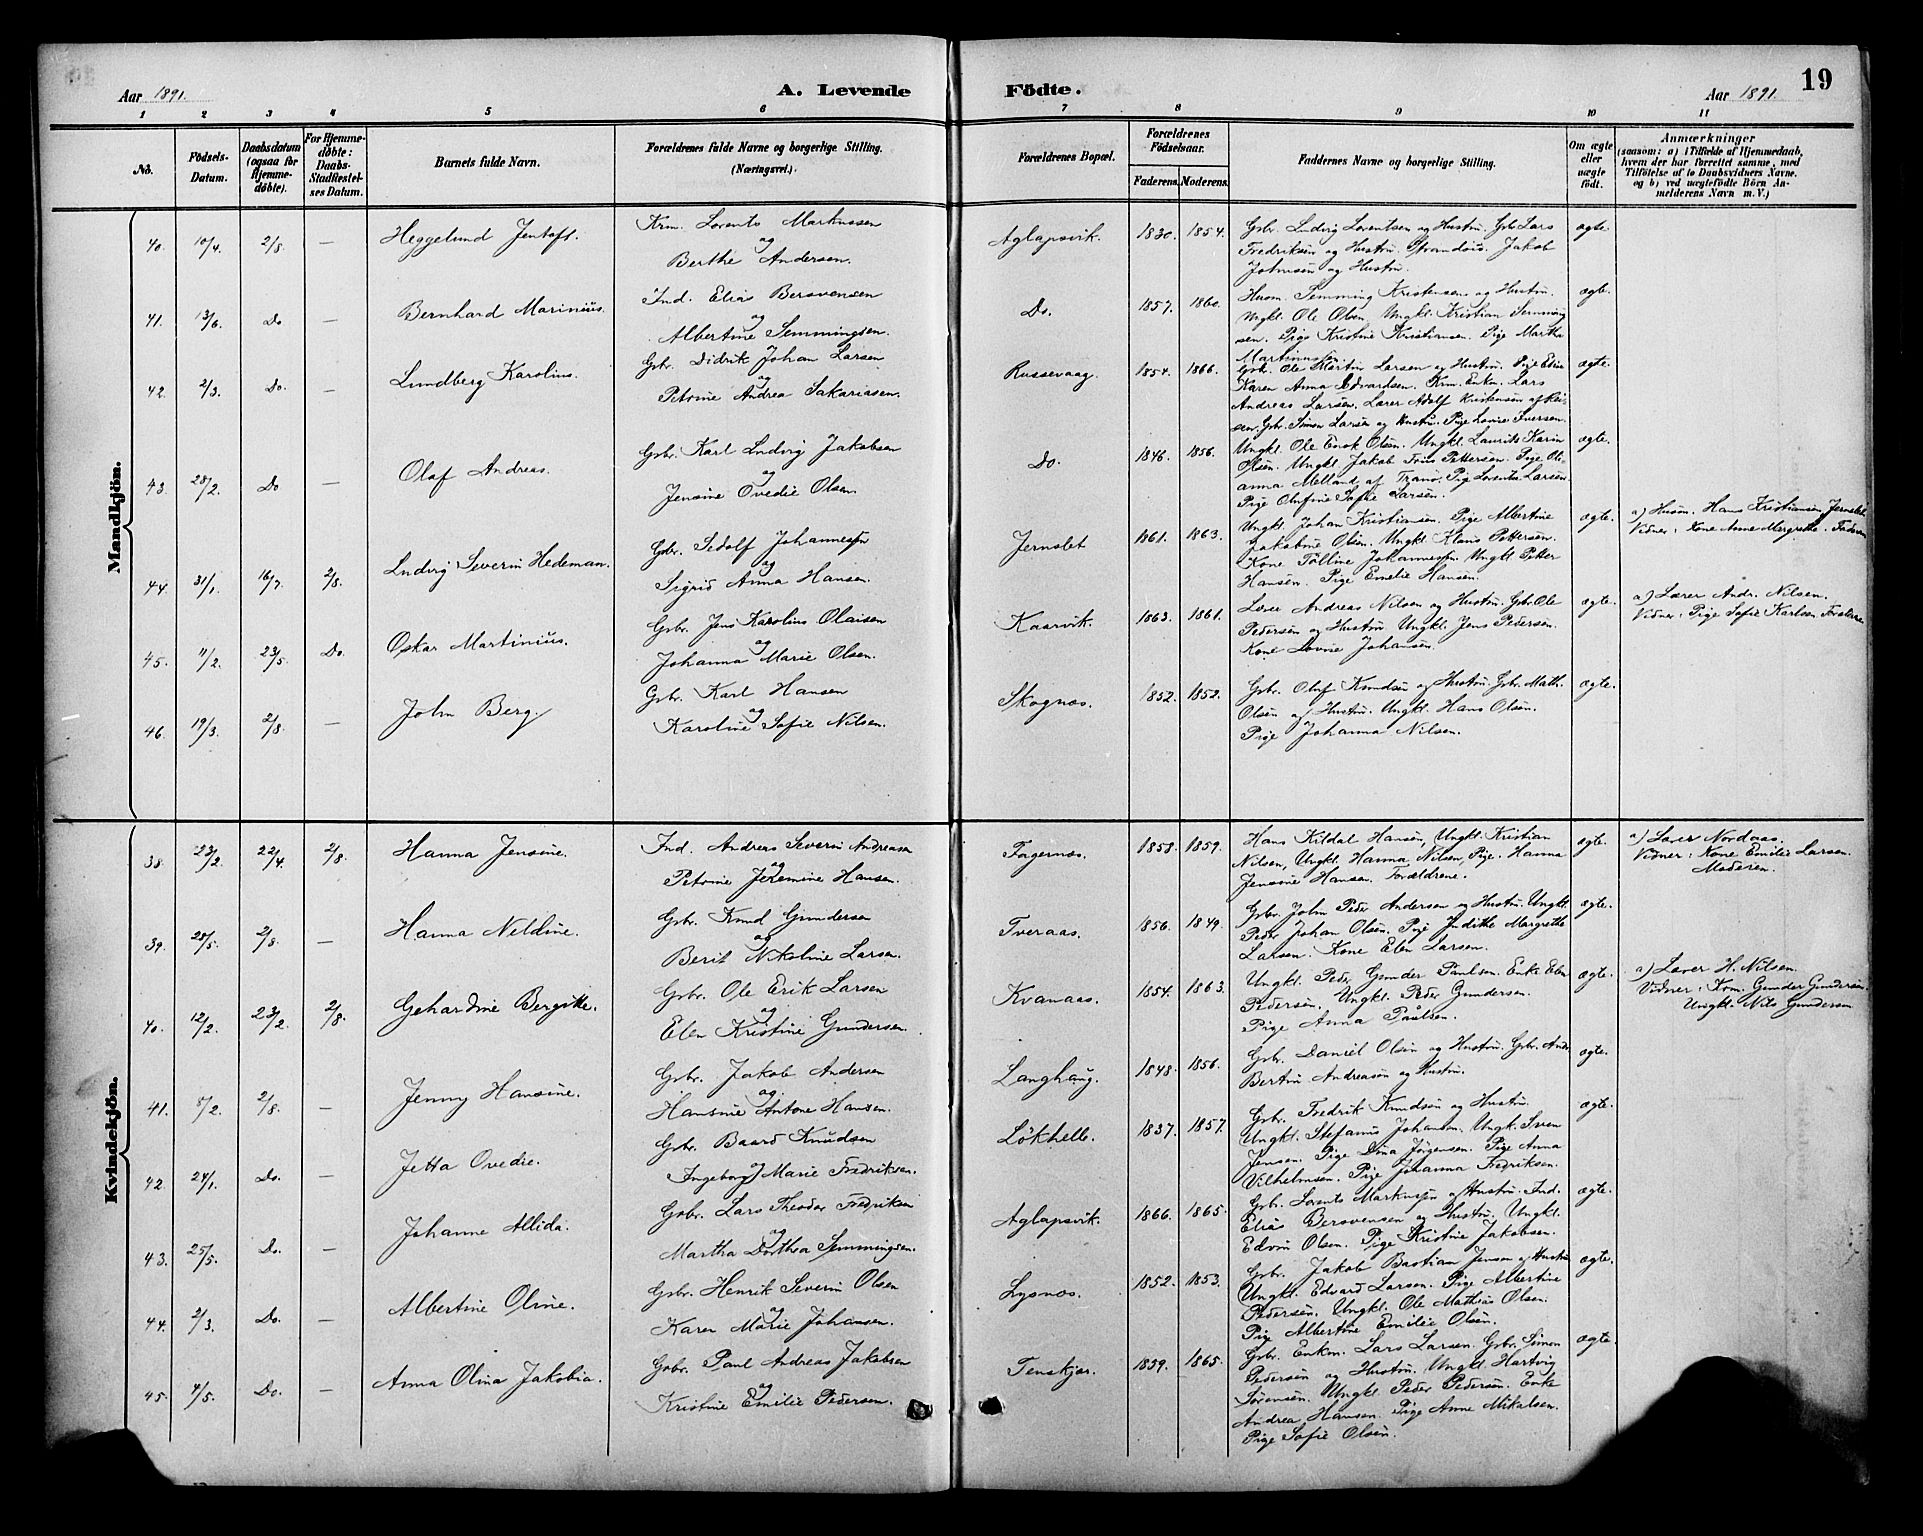 Aar 1891. A. Levende Födte. Aar 1891. 19
1 2 3 4 5 6 7 8 9 10 11
No. Födsels-Datum. Daabsdatum (ogsaa for Hjemme-döbte). For Hjemme-döbte: Daabs-Stadfæstelses Datum. Barnets fulde Navn. Forældrenes fulde Navne og borgerlige Stilling. (Næringsvei.) Forældrenes Bopæl. Forældrenes Födselsaar. Faderens. Moderens. Faddernes Navne og borgerlige Stilling. Om ægte eller uægte födt. Anmærkninger (saasom: a) i Tilfælde af Hjemmedaab, hvem der har forrettet samme, med Tilföielse af to Daabsvidners Navne, og b) ved uægtefödte Börn Anmelderens Navn m. V.)
Mandkjön.
40. 10/4. 2/8. — Heggelund Jentoft. Krm. Lorents Markussen og Berthe Andersen. Aglapsvik. 1830. 1854. Gbr. Ludvig Lorentsen og Hustru. Gbr. Lars Fredriksen og Hustru Jakob Johnsen og Hustru. ægte.
41. 13/6. Do — Bernhard Marinius. Ind. Elias Bersvensen og Albertine Semmingsen. Do. 1857. 1860. Husm. Semming Kristensen og Hustru. Ungkl. Ole Olsen, Ungkl. Kristian Semmingsen. Pige Kristine Kristiansen. Pige Martha Martinussen. ægte.
42. 2/3. Do. — Lundberg Karolius. Gbr. Didrik Johan Larsen og Petrine Andrea Sakariasen. Russevaag. 1854. 1866. Gbr. Ole Martin Larsen og Hustru. Pige Karen Anna Edvardsen. Krm. Enkm. Lars Andreas Larsen. Lærer Adolf Kristensen Gbr. Simon Larsen og Hustru. Pige Lovise Iversen. ægte.
43. 28/2. Do — Olaf Andreas. Gbr. Karl Ludvig Jakobsen og Jensine Ovedie Olsen. Do. 1846. 1856. Ungkl. Ole Enok Olsen. Ungkl. Laurits Karin Olsen. Ungkl. Jakob Friis Pettersen. Pige Oleanna Melland af Tranö. Pige Lorentse Larsen. Pige Olufine Sofie Larsen. ægte.
44. 31/1. 16/7. 2/8. Ludvig Severin Hedeman. Gbr. Sedolf Johannessen og Sigrid Anna Hansen. Jernslet 1861. 1863. Ungkl. Johan Kristiansen. Pige Albertine Jakobine Olsen. Ungkl. Klaus Pettersen. Kone Tölline Johannessen. Ungkl. Petter Hansen. Pige Emelie Hansen. ægte. a) Husm. Hans Kristiansen, Jernslet. Vidner: Kone Anne Margrethe. Faderen
45. 11/2. 23/5. Do. Oskar Martinius. Gbr. Jens Karolius Olaisen og Johanna Marie Olsen. Kaarvik. 1863. 1861. Lærer Andreas Nilsen og Hustru. Gbr. Ole Pedersen og Hustru. Ungkl. Jens Pedersen. Kone Lovise Johansen. ægte. a) Lærer Andr. Nilsen. Vidner: Pige Sofie Karlsen.
46. 19/3. 2/8. — John Berg. Gbr. Karl Hansen og Karoline Sofie Nilsen. Skognæs. 1852. 1852. Gbr. Oluf Knudsen og Hustru. Gbr. Math. Olsen og Hustru. Ungkl. Hans Olsen. Pige Johanna Nilsen. ægte.
Kvindekjön.
38. 23/2. 22/4. 2/8. Hanna Jensine. Ind. Andreas Severin Andreasen og Petrine Jeremine Hansen. Fagernæs. 1858. 1859. Hans Kildal Hansen, Ungkl. Kristian Nilsen, Ungkl. Hanna Nilsen, Pige. Hanna Jensine Hansen. Forældrene. ægte. a) Lærer Nordaas. Vidner: Kone Emilie Larsen. Moderen.
39. 28/5. 2/8. — Hanna Neldine. Gbr. Knud Gundersen og Berit Nikoline Larsen. Tveraas. 1856. 1849. Gbr. John Peder Andersen og Hustru. Ungkl. Peder Johan Olsen. Pige Indikke Margrethe Larsen. Kone Elen Larsen. ægte.
40. 12/2. 23/2. 2/8. Gehardine Bergitte. Gbr. Ole Erik Larsen og Elen Kristine Gundersen. Kvanaas. 1854. 1863. Ungkl. Peder Gunder Paulsen. Enke Elen Pedersen. Ungkl. Peder Gundersen. Pige Anna Paulsen. ægte. a) Lærer H. Nilsen. Vidner: Krm. Gunder Gundersen. Ungkl. Nils Gundersen
41. 8/2. 2/8. — Jenny Hansine. Gbr. Jakob Andersen og Hansine Antone Hansen. Langhaug. 1848. 1856. Gbr. Daniel Olsen og Hustru. Gbr. Andr. Bertin Andreasen og Hustru. ægte.
42. 24/1. Do. — Jetta Ovedie. Gbr. Baard Knudsen og Ingeborg Marie Fredriksen. Lökhelle. 1837. 1857. Gbr. Fredrik Knudsen og Hustru. Ungkl. Stefanus Johansen. Ungk. Sven Jensen. Pige Dina Jörgensen. Pige Anna Vilhelmsen. Pige Johanna Fredriksen. ægte.
43. 25/5. Do. — Johanne Allida. Gbr. Lars Theodor Fredriksen og Martha Dorthea Semmingsen. Aglapsvik. 1866. 1865. Gbr. Lorents Markussen og Hustru. Ind. Elias Bersvensen og Hustru. Ungkl. Edvin Olsen. Pige Kristine Jakobsen. ægte.
44. 2/3. Do. — Albertine Oline. Gbr. Henrik Severin Olsen og Karen Marie Johansen. Lysnæs. 1852. 1853. Gbr. Jakob Bastian Jensen og Hustru Ungkl. Edvard Larsen. Pige Albertine Pedersen. Ungkl. Ole Mathias Olsen. Pige Albertine Emilie Olsen. ægte.
45. 4/5. Do. — Anna Olina Jakobia. Gbr. Paul Andreas Jakobsen og Kristine Emilie Pedersen. Tenskjær. 1859. 1865. Gbr. Enkm. Lars Larsen. Gbr. Simon Pedersen og Hustru. Ungkl. Hartvig Sörensen. Ungkl. Peder Pedersen. Enke Andrea Hansen. Pige Anne Mikalsen. Pige Sofie Olsen. ægte.